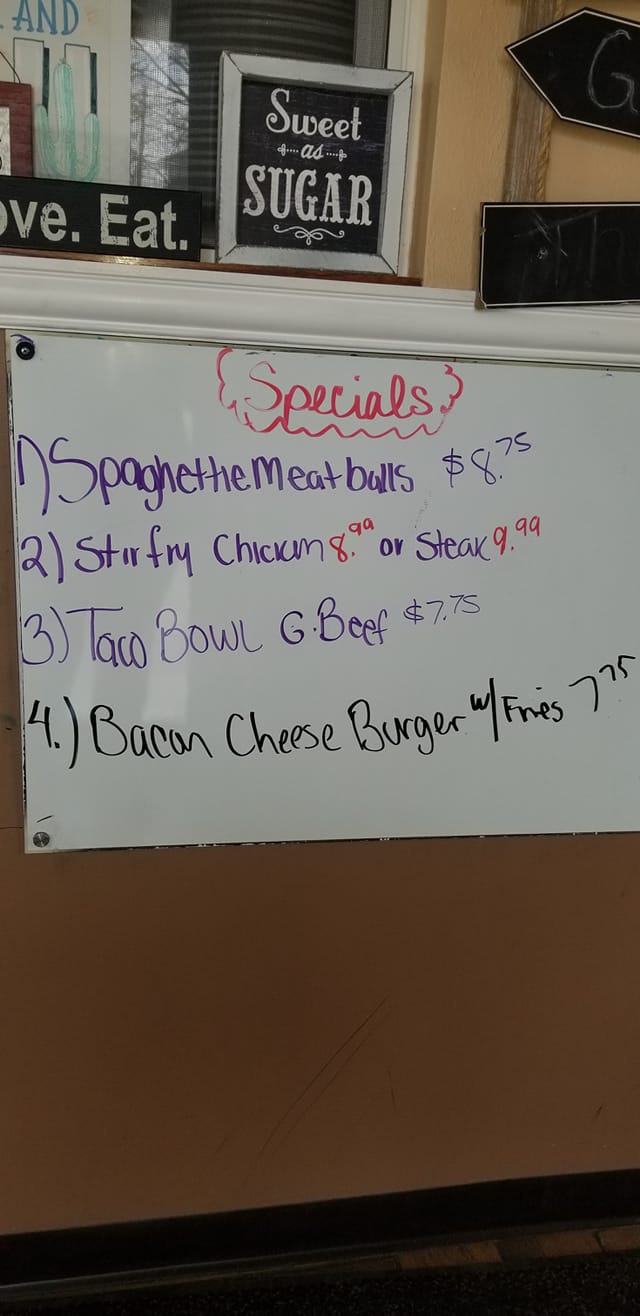 AND
ove. Eat.
Sweet
as
SUGAR
G
Specials
1) SpaghettieMeatballs $8.75
2) Stirfry Chicken 8.99 or Steak 9.99
3) Taco Bowl G.Beef $7.75
4.) Bacon Cheese Burger w/Fries 7 75